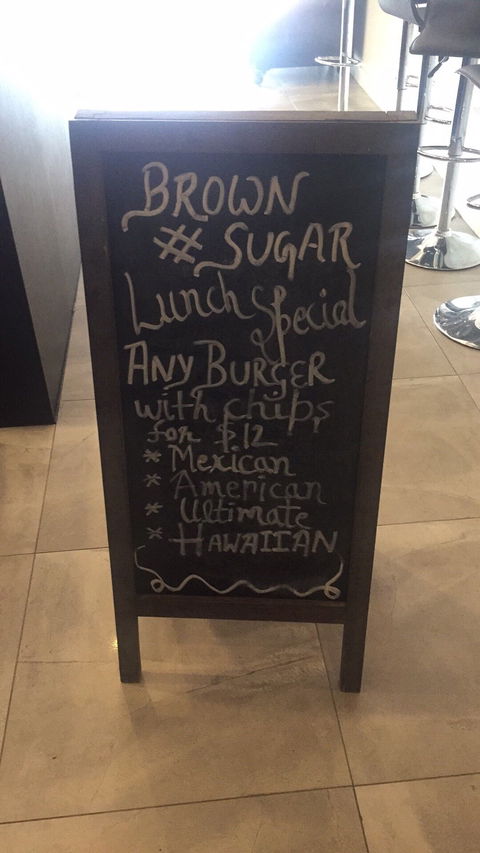 BROWN
# SUGAR
Lunch Special
ANY BURGER
with chips
for $.12
* Mexican
* American
* Ultimate
* HAWAIIAN